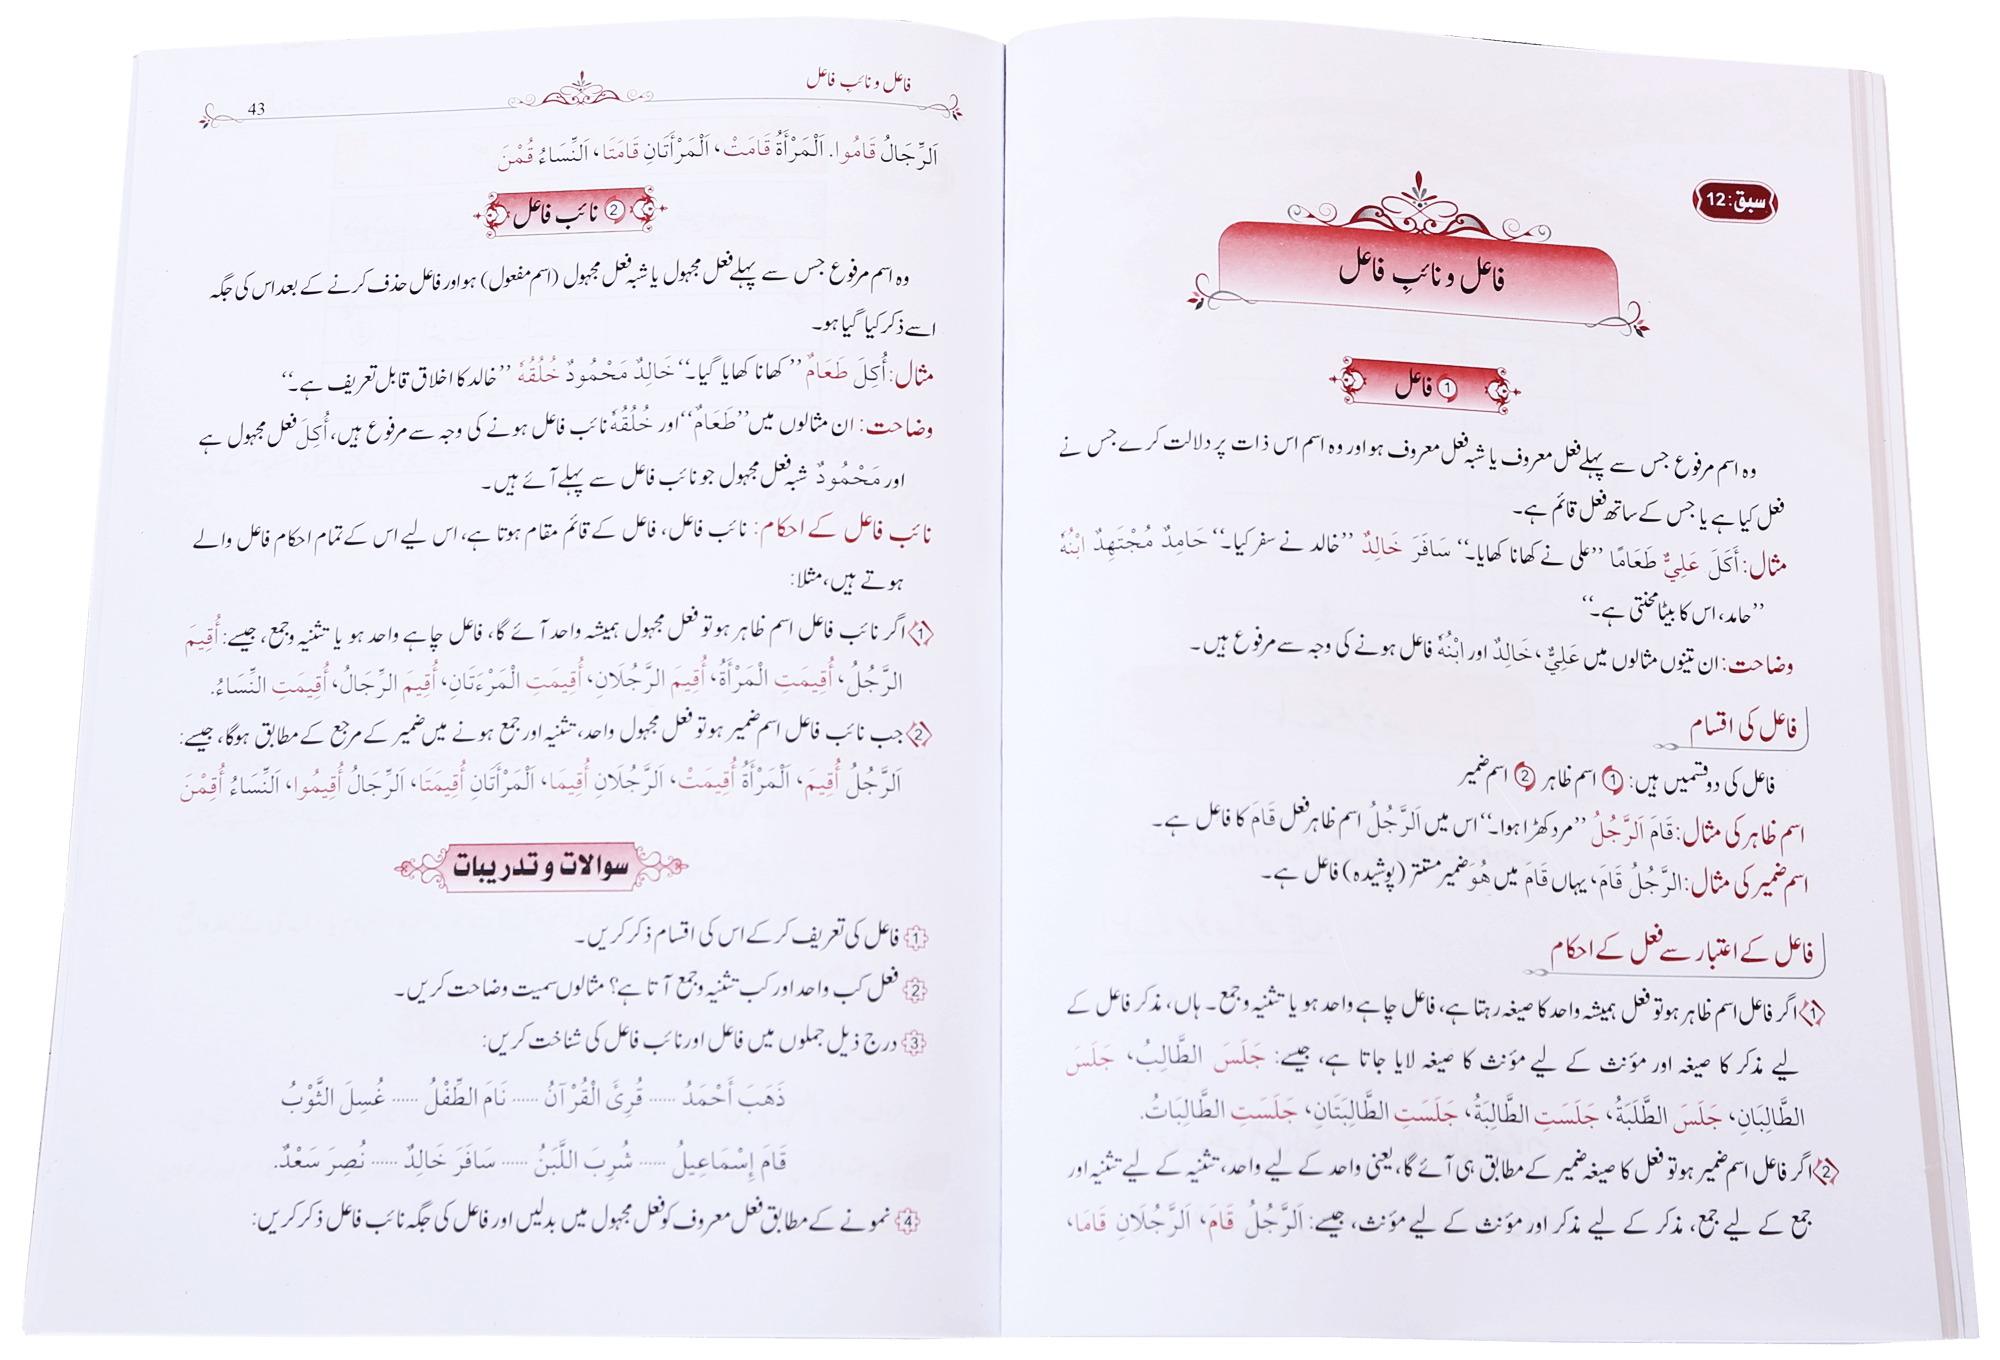 سبق: 12
فاعل و نائبِ فاعل
1 فاعل
وہ اسم مرفوع جس سے پہلے فعل معروف یا شبہ فعل معروف ہو اور وہ اسم اس ذات پر دلالت کرے جس نے
فعل کیا ہے یا جس کے ساتھ فعل قائم ہے۔
مثال: أَكَلَ عَلِيٌّ طَعَامًا ’’علی نے کھانا کھایا۔‘‘ سَافَرَ خَالِدٌ ’’خالد نے سفر کیا۔‘‘ حَامِدٌ مُجْتَهِدٌ ابْنُهٗ
’’حامد، اس کا بیٹا محنتی ہے۔‘‘
وضاحت: ان تینوں مثالوں میں عَلِيٌّ، خَالِدٌ اور ابْنُهٗ فاعل ہونے کی وجہ سے مرفوع ہیں۔
فاعل کی اقسام
فاعل کی دو قسمیں ہیں: 1 اسم ظاہر 2 اسم ضمیر
اسم ظاہر کی مثال: قَامَ اَلرَّجُلُ ’’مرد کھڑا ہوا۔‘‘ اس میں اَلرَّجُلُ اسم ظاہر فعل قَامَ کا فاعل ہے۔
اسم ضمیر کی مثال: الرَّجُلُ قَامَ، یہاں قَامَ میں هُوَ ضمیر مستتر (پوشیدہ) فاعل ہے۔
فاعل کے اعتبار سے فعل کے احکام
1 اگر فاعل اسم ظاہر ہو تو فعل ہمیشہ واحد کا صیغہ رہتا ہے، فاعل چاہے واحد ہو یا تثنیہ و جمع۔ ہاں، مذکر فاعل کے
لیے مذکر کا صیغہ اور مؤنث کے لیے مؤنث کا صیغہ لایا جاتا ہے، جیسے: جَلَسَ الطَّالِبُ، جَلَسَ
الطَّالِبَانِ، جَلَسَ الطَّلَبَةُ، جَلَسَتِ الطَّالِبَةُ، جَلَسَتِ الطَّالِبَتَانِ، جَلَسَتِ الطَّالِبَاتُ.
2 اگر فاعل اسم ضمیر ہو تو فعل کا صیغہ ضمیر کے مطابق ہی آئے گا، یعنی واحد کے لیے واحد، تثنیہ کے لیے تثنیہ اور
جمع کے لیے جمع، مذکر کے لیے مذکر اور مؤنث کے لیے مؤنث، جیسے: اَلرَّجُلُ قَامَ، اَلرَّجُلَانِ قَامَا،
فاعل و نائبِ فاعل
43
اَلرِّجَالُ قَامُوا. اَلْمَرْأَةُ قَامَتْ، اَلْمَرْأَتَانِ قَامَتَا، اَلنِّسَاءُ قُمْنَ
2 نائب فاعل
وہ اسم مرفوع جس سے پہلے فعل مجہول یا شبہ فعل مجہول (اسم مفعول) ہو اور فاعل حذف کرنے کے بعد اس کی جگہ
اسے ذکر کیا گیا ہو۔
مثال: أُكِلَ طَعَامٌ ’’کھانا کھایا گیا۔‘‘ خَالِدٌ مَحْمُودٌ خُلُقُهٗ ’’خالد کا اخلاق قابل تعریف ہے۔‘‘
وضاحت: ان مثالوں میں ’’طَعَامٌ‘‘ اور خُلُقُهٗ نائب فاعل ہونے کی وجہ سے مرفوع ہیں، أُكِلَ فعل مجہول ہے
اور مَحْمُودٌ شبہ فعل مجہول جو نائب فاعل سے پہلے آئے ہیں۔
نائب فاعل کے احکام: نائب فاعل، فاعل کے قائم مقام ہوتا ہے، اس لیے اس کے تمام احکام فاعل والے
ہوتے ہیں، مثلا:
1 اگر نائب فاعل اسم ظاہر ہو تو فعل مجہول ہمیشہ واحد آئے گا، فاعل چاہے واحد ہو یا تثنیہ و جمع، جیسے: أُقِيمَ
الرَّجُلُ، أُقِيمَتِ الْمَرْأَةُ، أُقِيمَ الرَّجُلَانِ، أُقِيمَتِ الْمَرْءَتَانِ، أُقِيمَ الرِّجَالُ، أُقِيمَتِ النِّسَاءُ.
2 جب نائب فاعل اسم ضمیر ہو تو فعل مجہول واحد، تثنیہ اور جمع ہونے میں ضمیر کے مرجع کے مطابق ہوگا، جیسے:
اَلرَّجُلُ أُقِيمَ، اَلْمَرْأَةُ أُقِيمَتْ، اَلرَّجُلَانِ أُقِيمَا، اَلْمَرْأَتَانِ أُقِيمَتَا، اَلرِّجَالُ أُقِيمُوا، اَلنِّسَاءُ أُقِمْنَ
سوالات و تدریبات
1 فاعل کی تعریف کر کے اس کی اقسام ذکر کریں۔
2 فعل کب واحد اور کب تثنیہ و جمع آتا ہے؟ مثالوں سمیت وضاحت کریں۔
3 درج ذیل جملوں میں فاعل اور نائب فاعل کی شناخت کریں:
ذَهَبَ أَحْمَدُ ...... قُرِئَ الْقُرْآنُ ...... نَامَ الطِّفْلُ ...... غُسِلَ الثَّوْبُ
قَامَ إِسْمَاعِيلُ ...... شُرِبَ اللَّبَنُ ...... سَافَرَ خَالِدٌ ...... نُصِرَ سَعْدٌ.
4 نمونے کے مطابق فعل معروف کو فعل مجہول میں بدلیں اور فاعل کی جگہ نائب فاعل ذکر کریں: